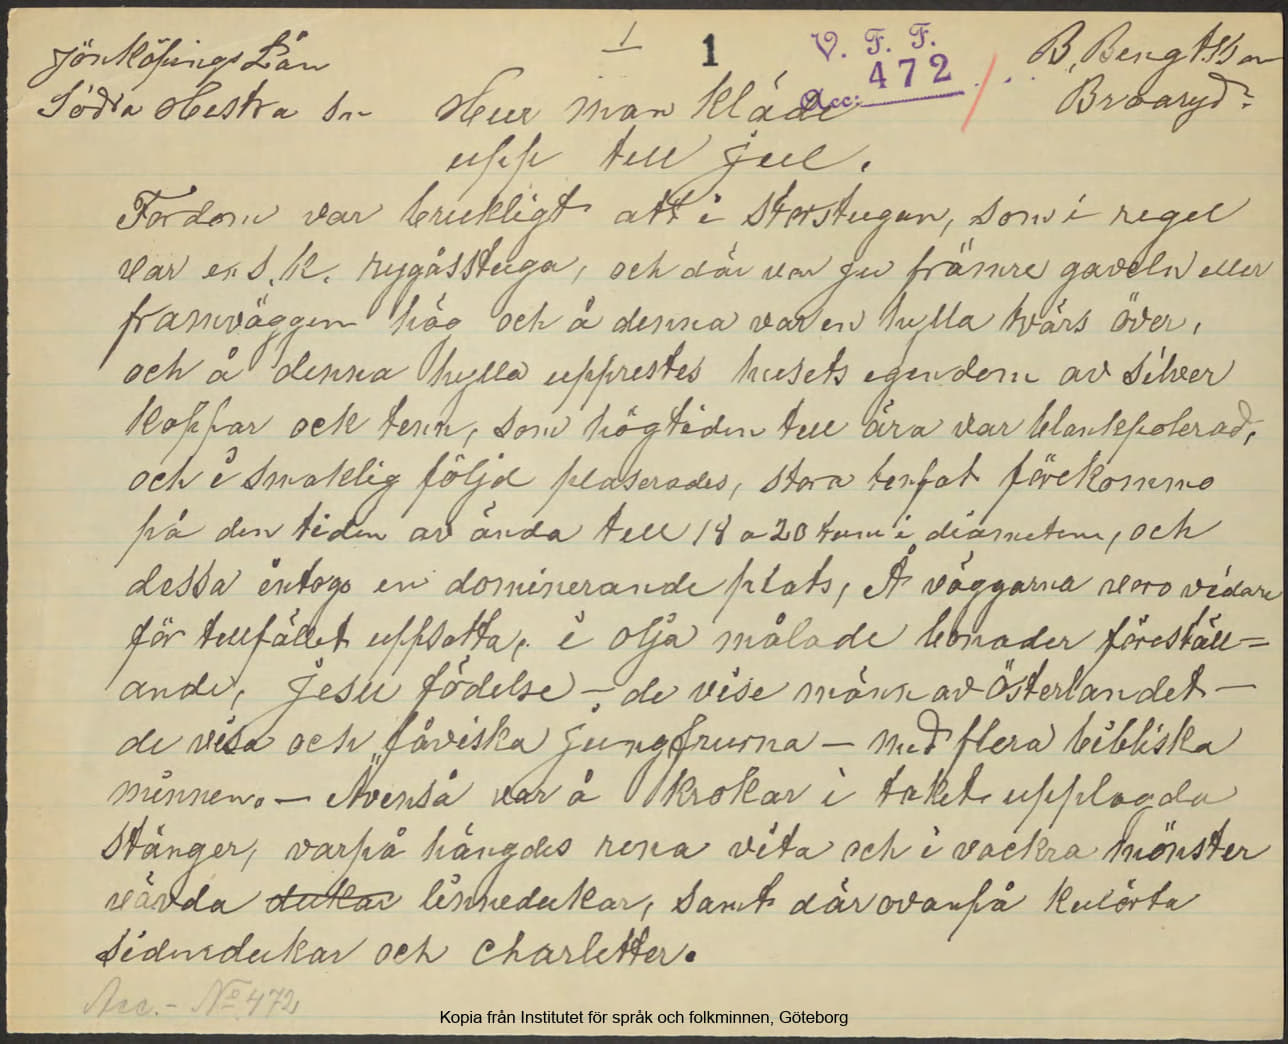 Jönköpings Län
Södra Hestra Sn
1
1
V. F. F.
Acc: 472
B. Bengtsson
Broaryd
Hur man kläde
upp till jul.
Fordom var brukligt att i storstugan, som i regel
var en s.k. rygåsstuga, och där var ju främre gaveln eller
framväggen hög och å denna var en hylla tvärs över,
och å denna hylla upprestes husets egendom av silver
koppar ock tenn, som högtiden till ära var blankpolerad,
och i smaklig följd plaserades, stora tenfat förekommo
på den tiden av ända till 18 a 20 tum i diametern, och
dessa intogo en dominerande plats, Å väggarna voro vidare
för tillfället uppsatta, i olja målade bonader föreställ=
ande, Jesu födelse – de vise männ av Österlandet –
de visa och fåviska jungfrurna – med flera bibliska
minnen. – Ävenså var å krokar i taket upplagda
stänger, varpå hängdes rena vita och i vackra mönster
vävda dukar linnedukar, samt där ovanpå kulörta
sidendukar och charletter.
Acc. – No 472
Kopia från Institutet för språk och folkminnen, Göteborg